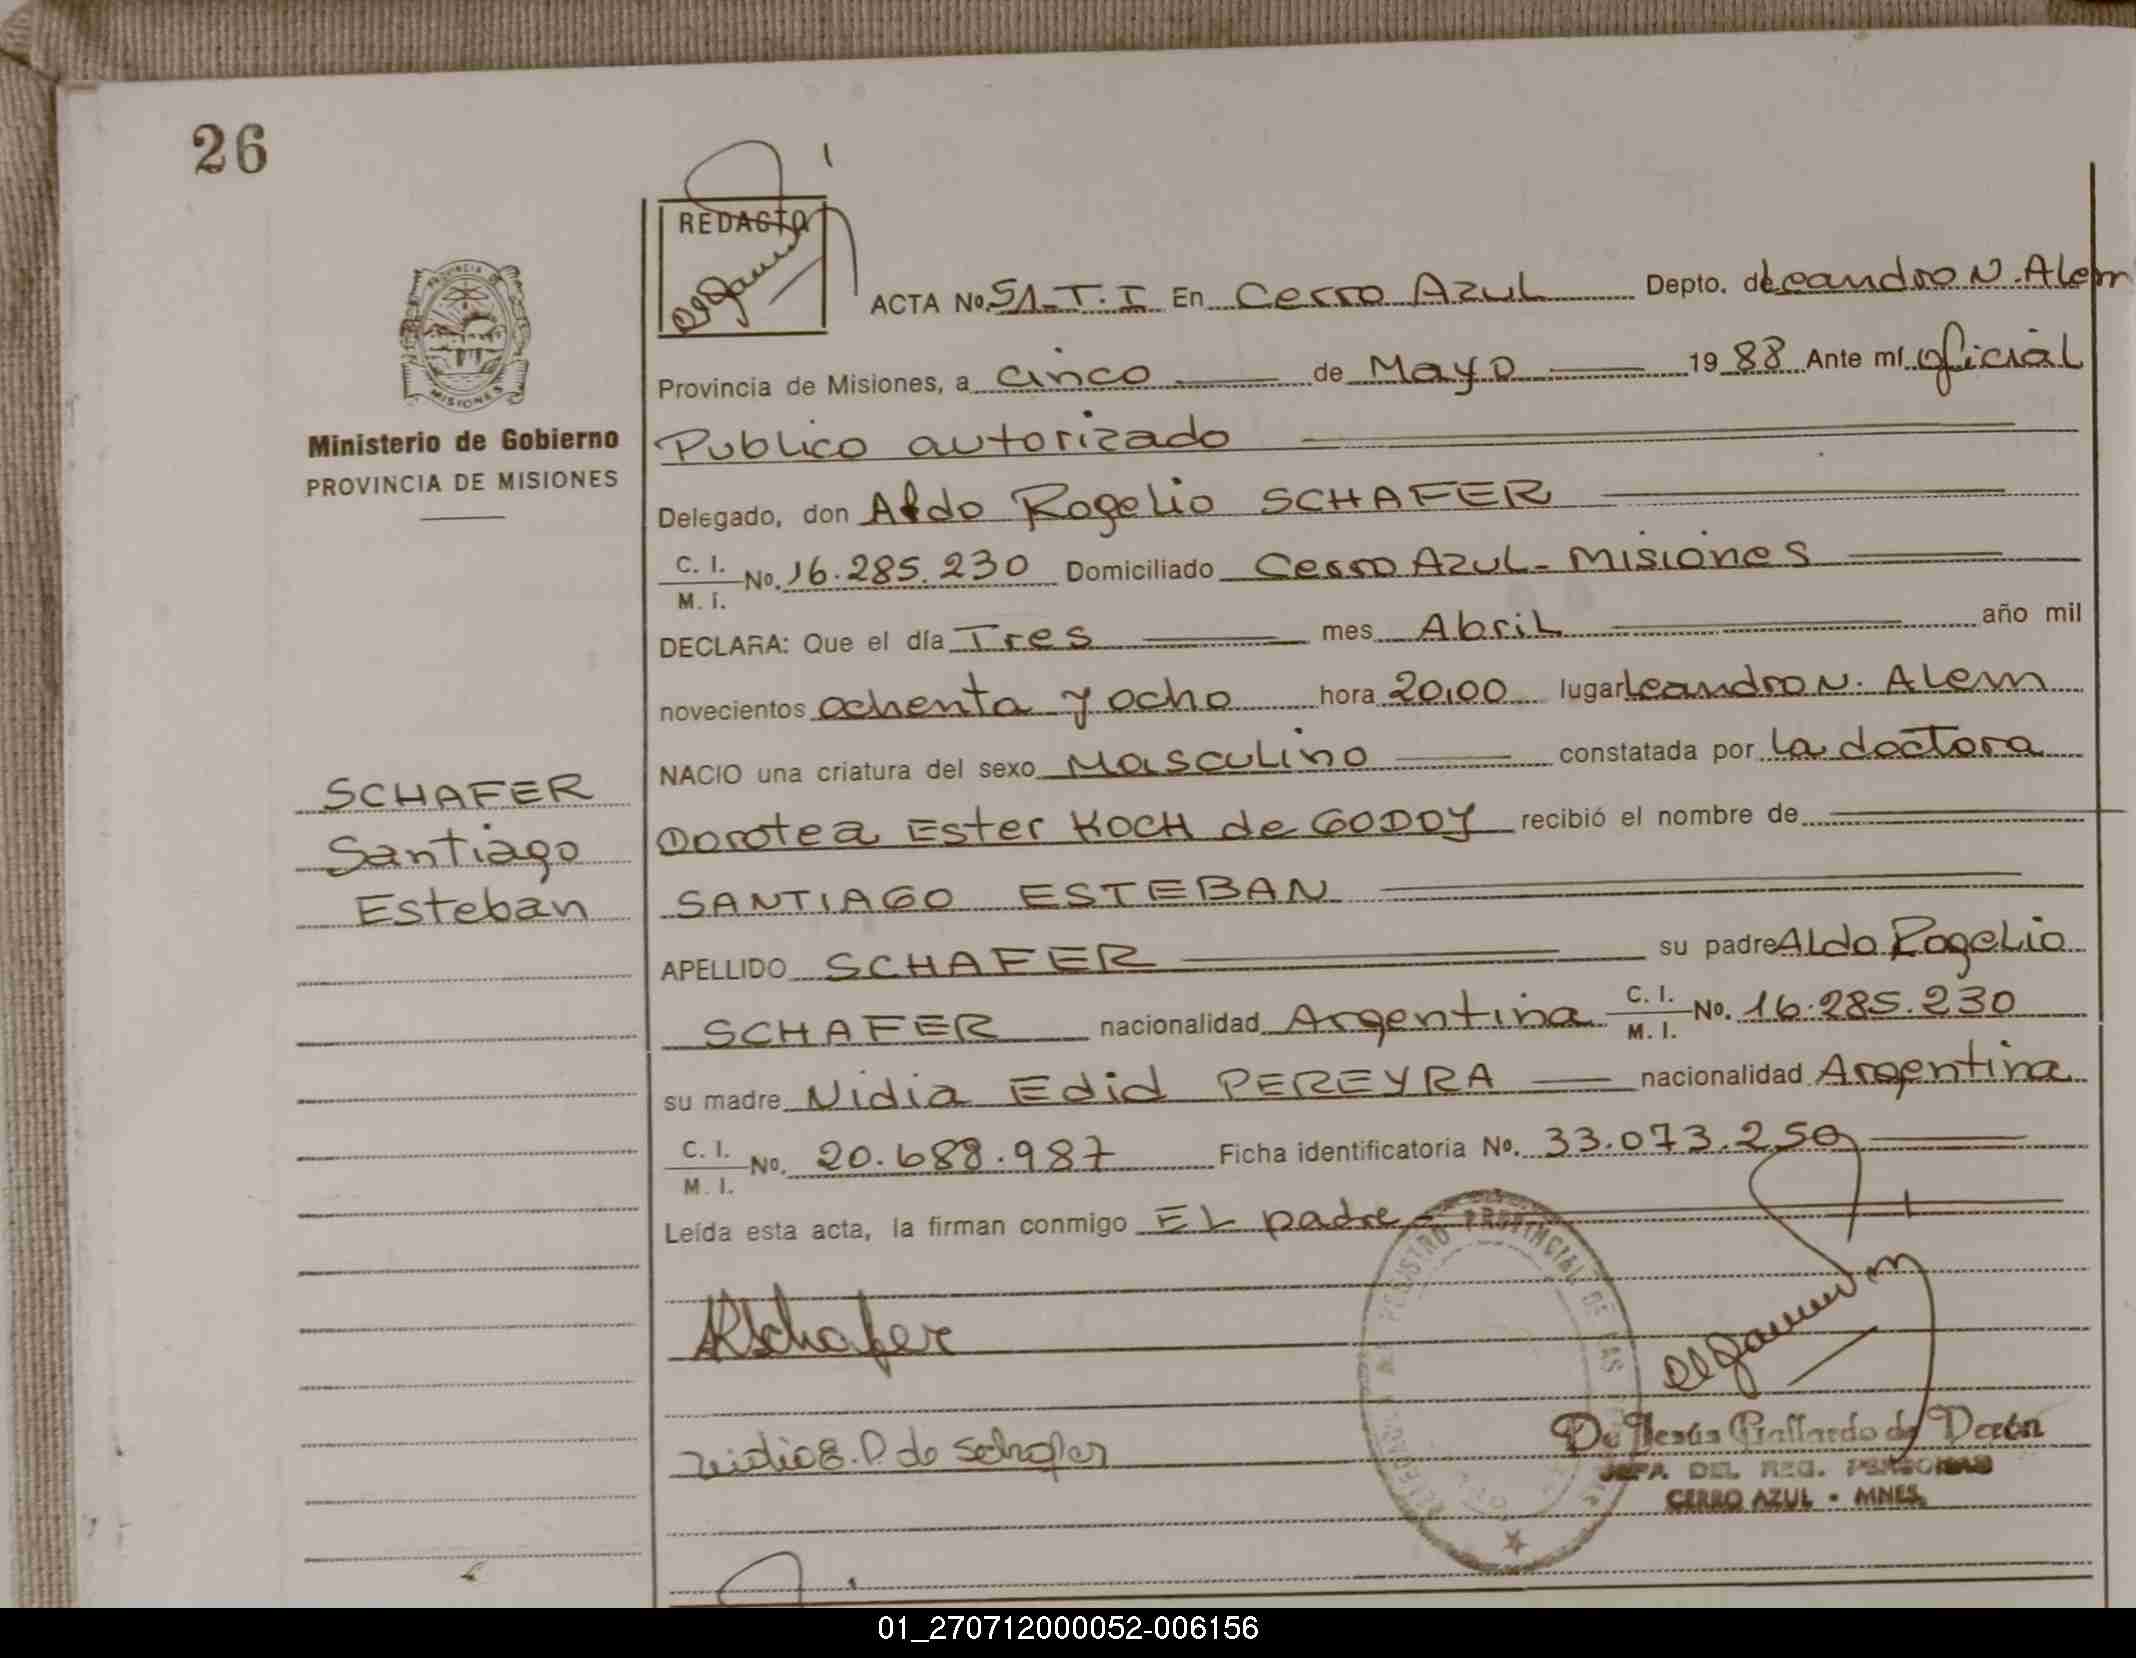 26
REDACTO
ACTA No. 51-T.I En Cerro Azul Depto. de Leandro N. Alem
Provincia de Misiones, a cinco de Mayo 1988 Ante mí oficial
Publico autorizado
Delegado, don Aldo Rogelio SCHAFER
C. I.
M. I.
No. 16.285.230 Domiciliado Cerro Azul - Misiones
DECLARA: Que el día Tres mes Abril año mil
novecientos ochenta y ocho hora 20,00 lugar Leandro N. Alem
NACIO una criatura del sexo Masculino constatada por la doctora
Dorotea Ester KOCH de GODOY recibió el nombre de
SANTIAGO ESTEBAN
APELLIDO SCHAFER su padre Aldo Rogelio
SCHAFER nacionalidad Argentina C. I.
M. I.
No. 16.285.230
su madre Nidia Edid PEREYRA nacionalidad Argentina
C. I.
M. I.
No. 20.688.987 Ficha identificatoria No. 33.073.250
Leída esta acta, la firman conmigo El padre
PROVINCIA DE
MISIONES
Ministerio de Gobierno
PROVINCIA DE MISIONES
SCHAFER
Santiago
Esteban
ARSchafer
Nidia E. P. de Schafer
REGISTRO PROVINCIAL DE LAS
De Jesús Gallardo de
JEFA DEL REG. PERSONAS
CERRO AZUL - MNES.
01_270712000052-006156